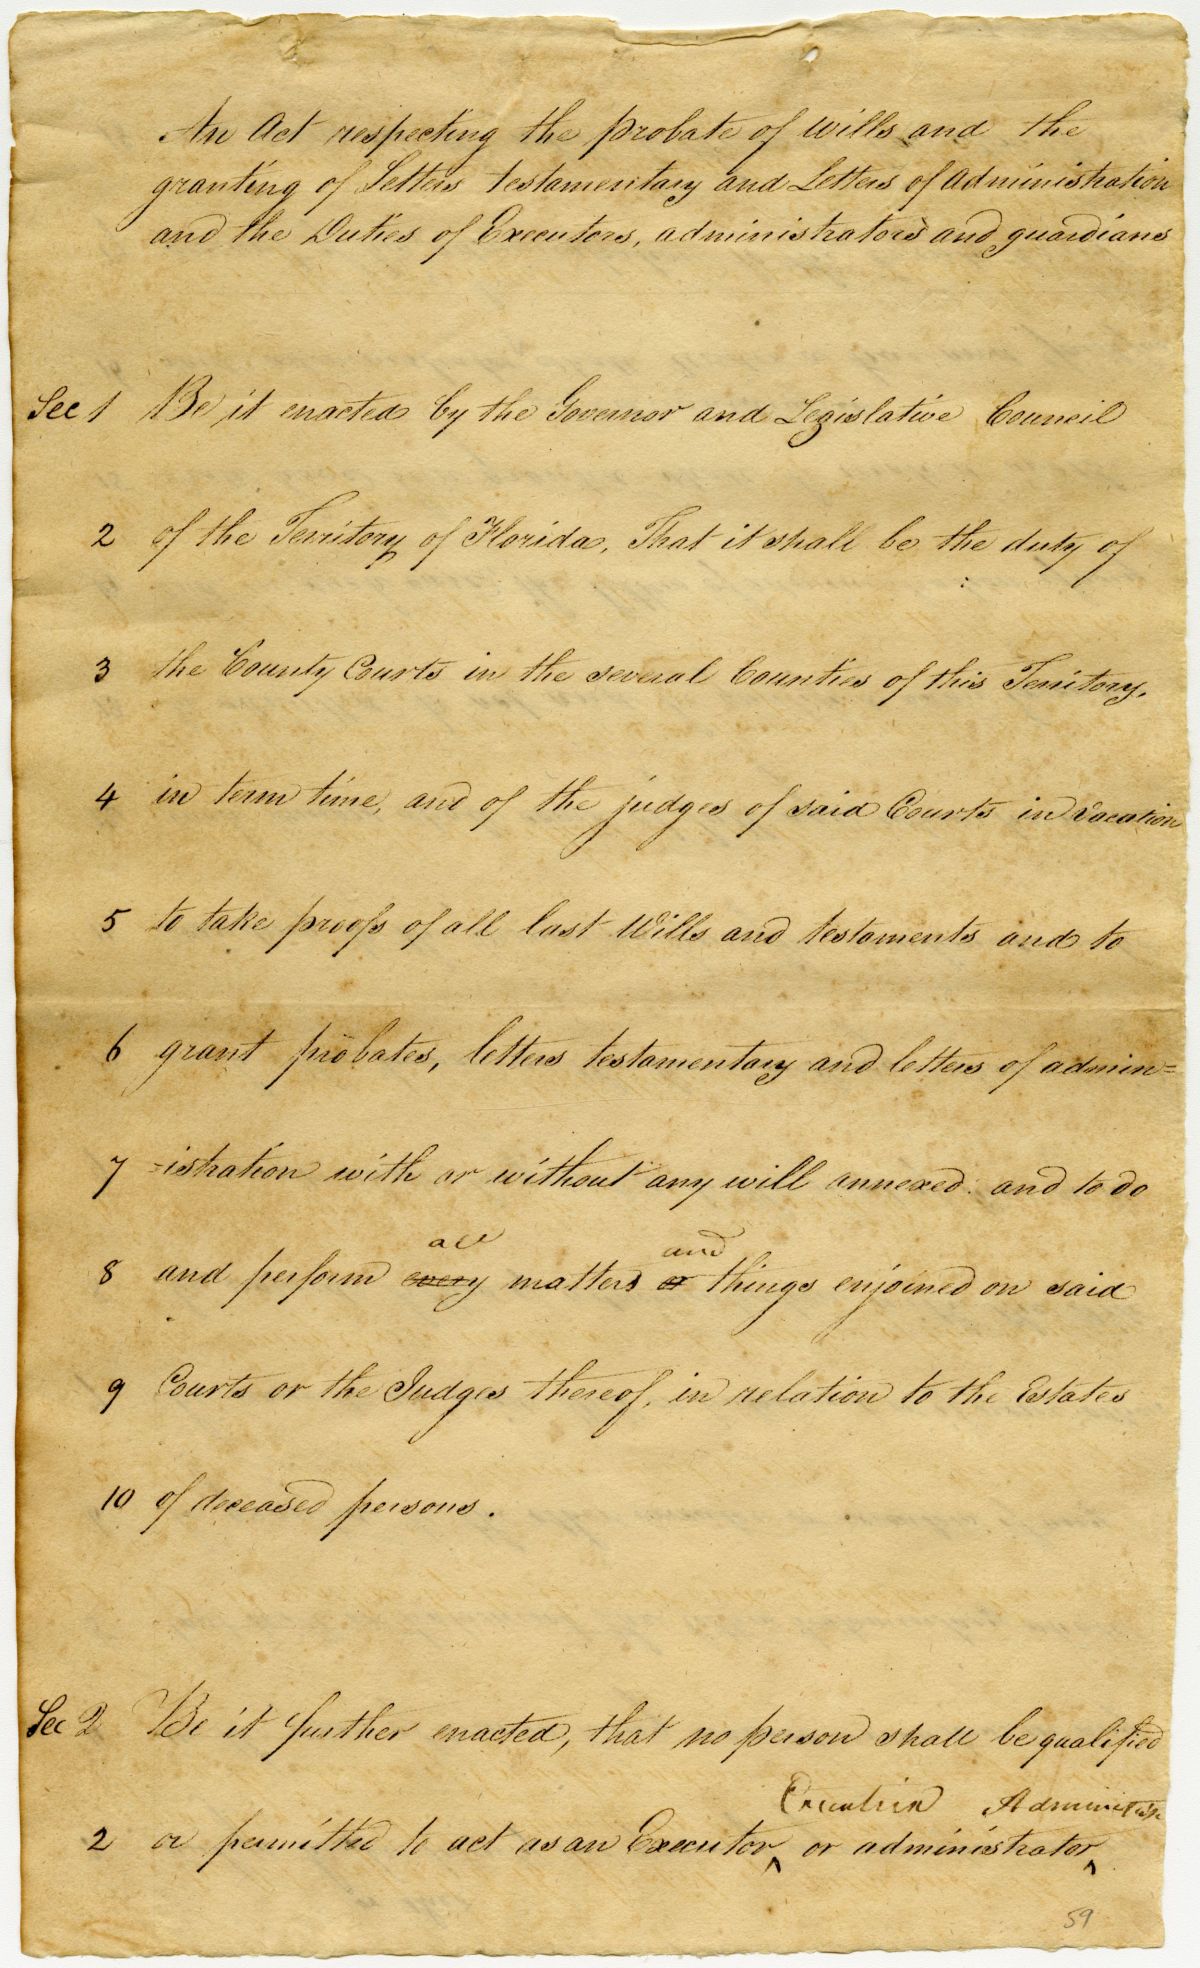 An Act respecting the probate of Wills and the
granting of Letters testamentary and Letters of Administration
and the Duties of Executors, administrators and guardians
Sec 1 Be it enacted by the Governor and Legislative Council
2 of the Territory of Florida, That it shall be the duty of
3 the County Courts in the several Counties of this Territory,
4 in term time, and of the judges of said Courts in vacation
5 to take proofs of all last Wills and testaments and to
6 grant probates, letters testamentary and letters of admin=
7 =istration with or without any will annexed: and to do
all and
8 and perform every matters or things enjoined on said
9 Courts or the Judges thereof, in relation to the Estates
10 of deceased persons.
Sec 2 Be it further enacted, that no person shall be qualified
Executrix Administrix
2 or permitted to act as an Executor^ or administrator^
59